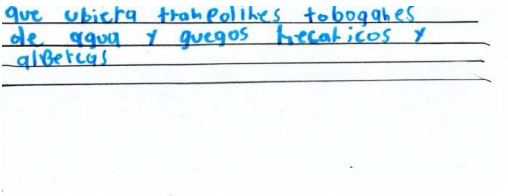 que ubiera tranpolines toboganes
de agua y guegos mecanicos y
albercas